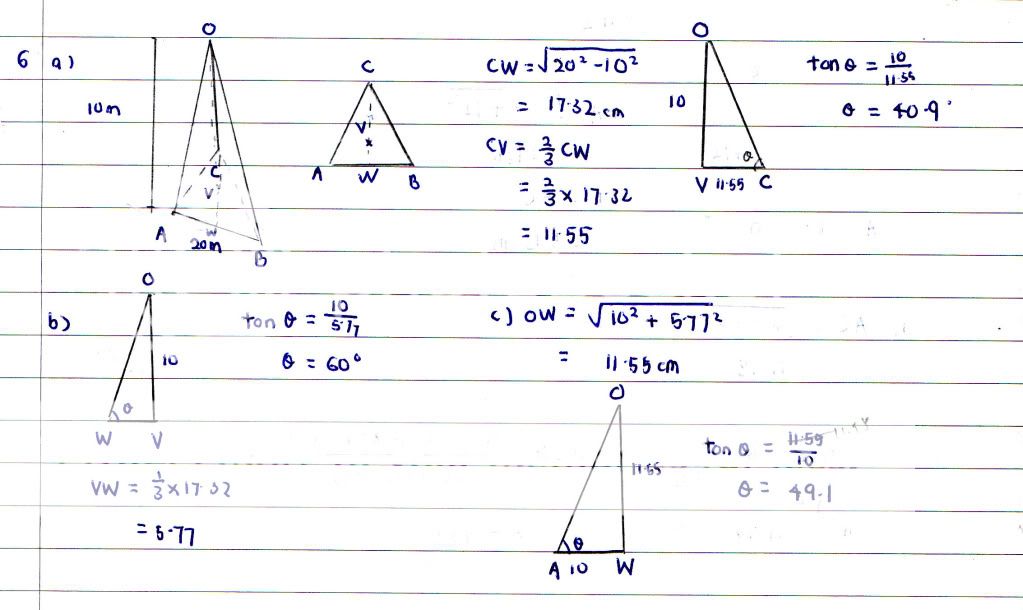 6 a)
10m
O
C
V
A
W
20m
B
C
V
A W B
CW = √20² - 10²
= 17.32 cm
CV = 2/3 CW
= 2/3 × 17.32
= 11.55
O
10
θ
V 11.55 C
tan θ = 10/11.55
θ = 40.9°
b)
O
10
θ
W V
VW = 1/3 × 17.32
= 5.77
tan θ = 10/5.77
θ = 60°
c) OW = √10² + 5.77²
= 11.55 cm
O
11.55
θ
A 10 W
tan θ = 11.55/10
θ = 49.1